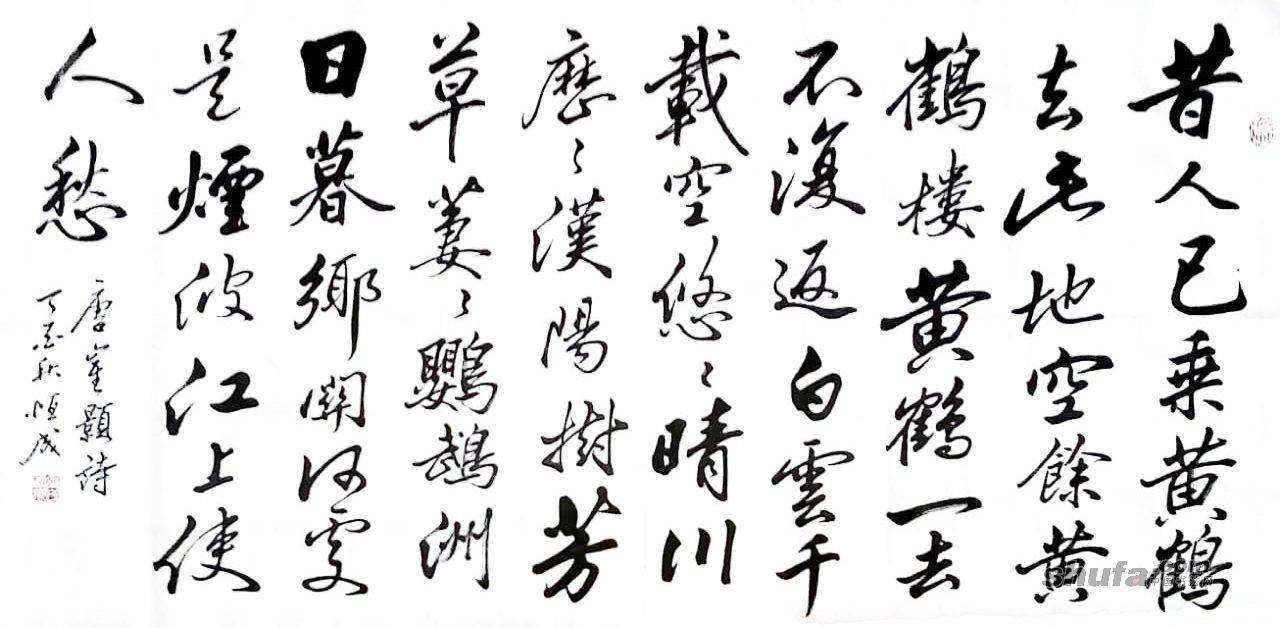 昔人已乘黄鶴
去此地空餘黄
鶴樓黄鶴一去
不復返白雲千
載空悠々晴川
歷々漢陽樹芳
草萋々鸚鵡洲
日暮鄉關何處
是煙波江上使
人愁
唐崔顥詩
丁酉秋恒成